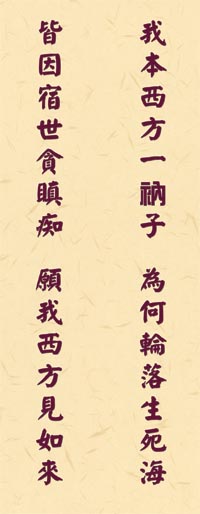 我本西方一衲子　為何輪落生死海
皆因宿世貪瞋痴　願我西方見如來